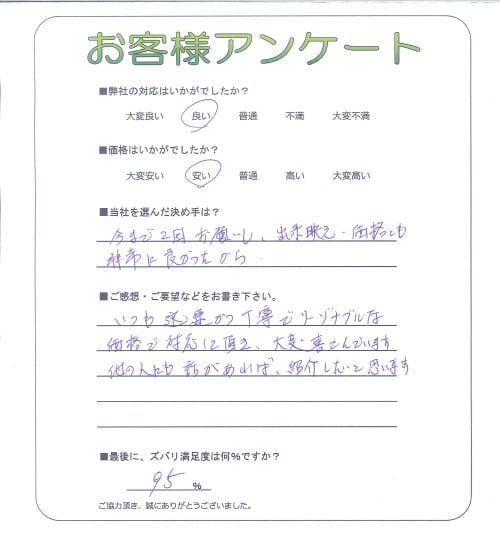 お客様アンケート
■弊社の対応はいかがでしたか？
大変良い 良い 普通 不満 大変不満
■価格はいかがでしたか？
大変安い 安い 普通 高い 大変高い
■当社を選んだ決め手は？
今まで2回お願いし、出来映え・価格とも
非常に良かったから
■ご感想・ご要望などをお書き下さい。
いつも迅速かつ丁寧でリーゾナブルな
価格で対応して頂き、大変喜こんでいます
他の人にも話があれば、紹介したいと思います
■最後に、ズバリ満足度は何％ですか？
95 ％
ご協力頂き、誠にありがとうございました。